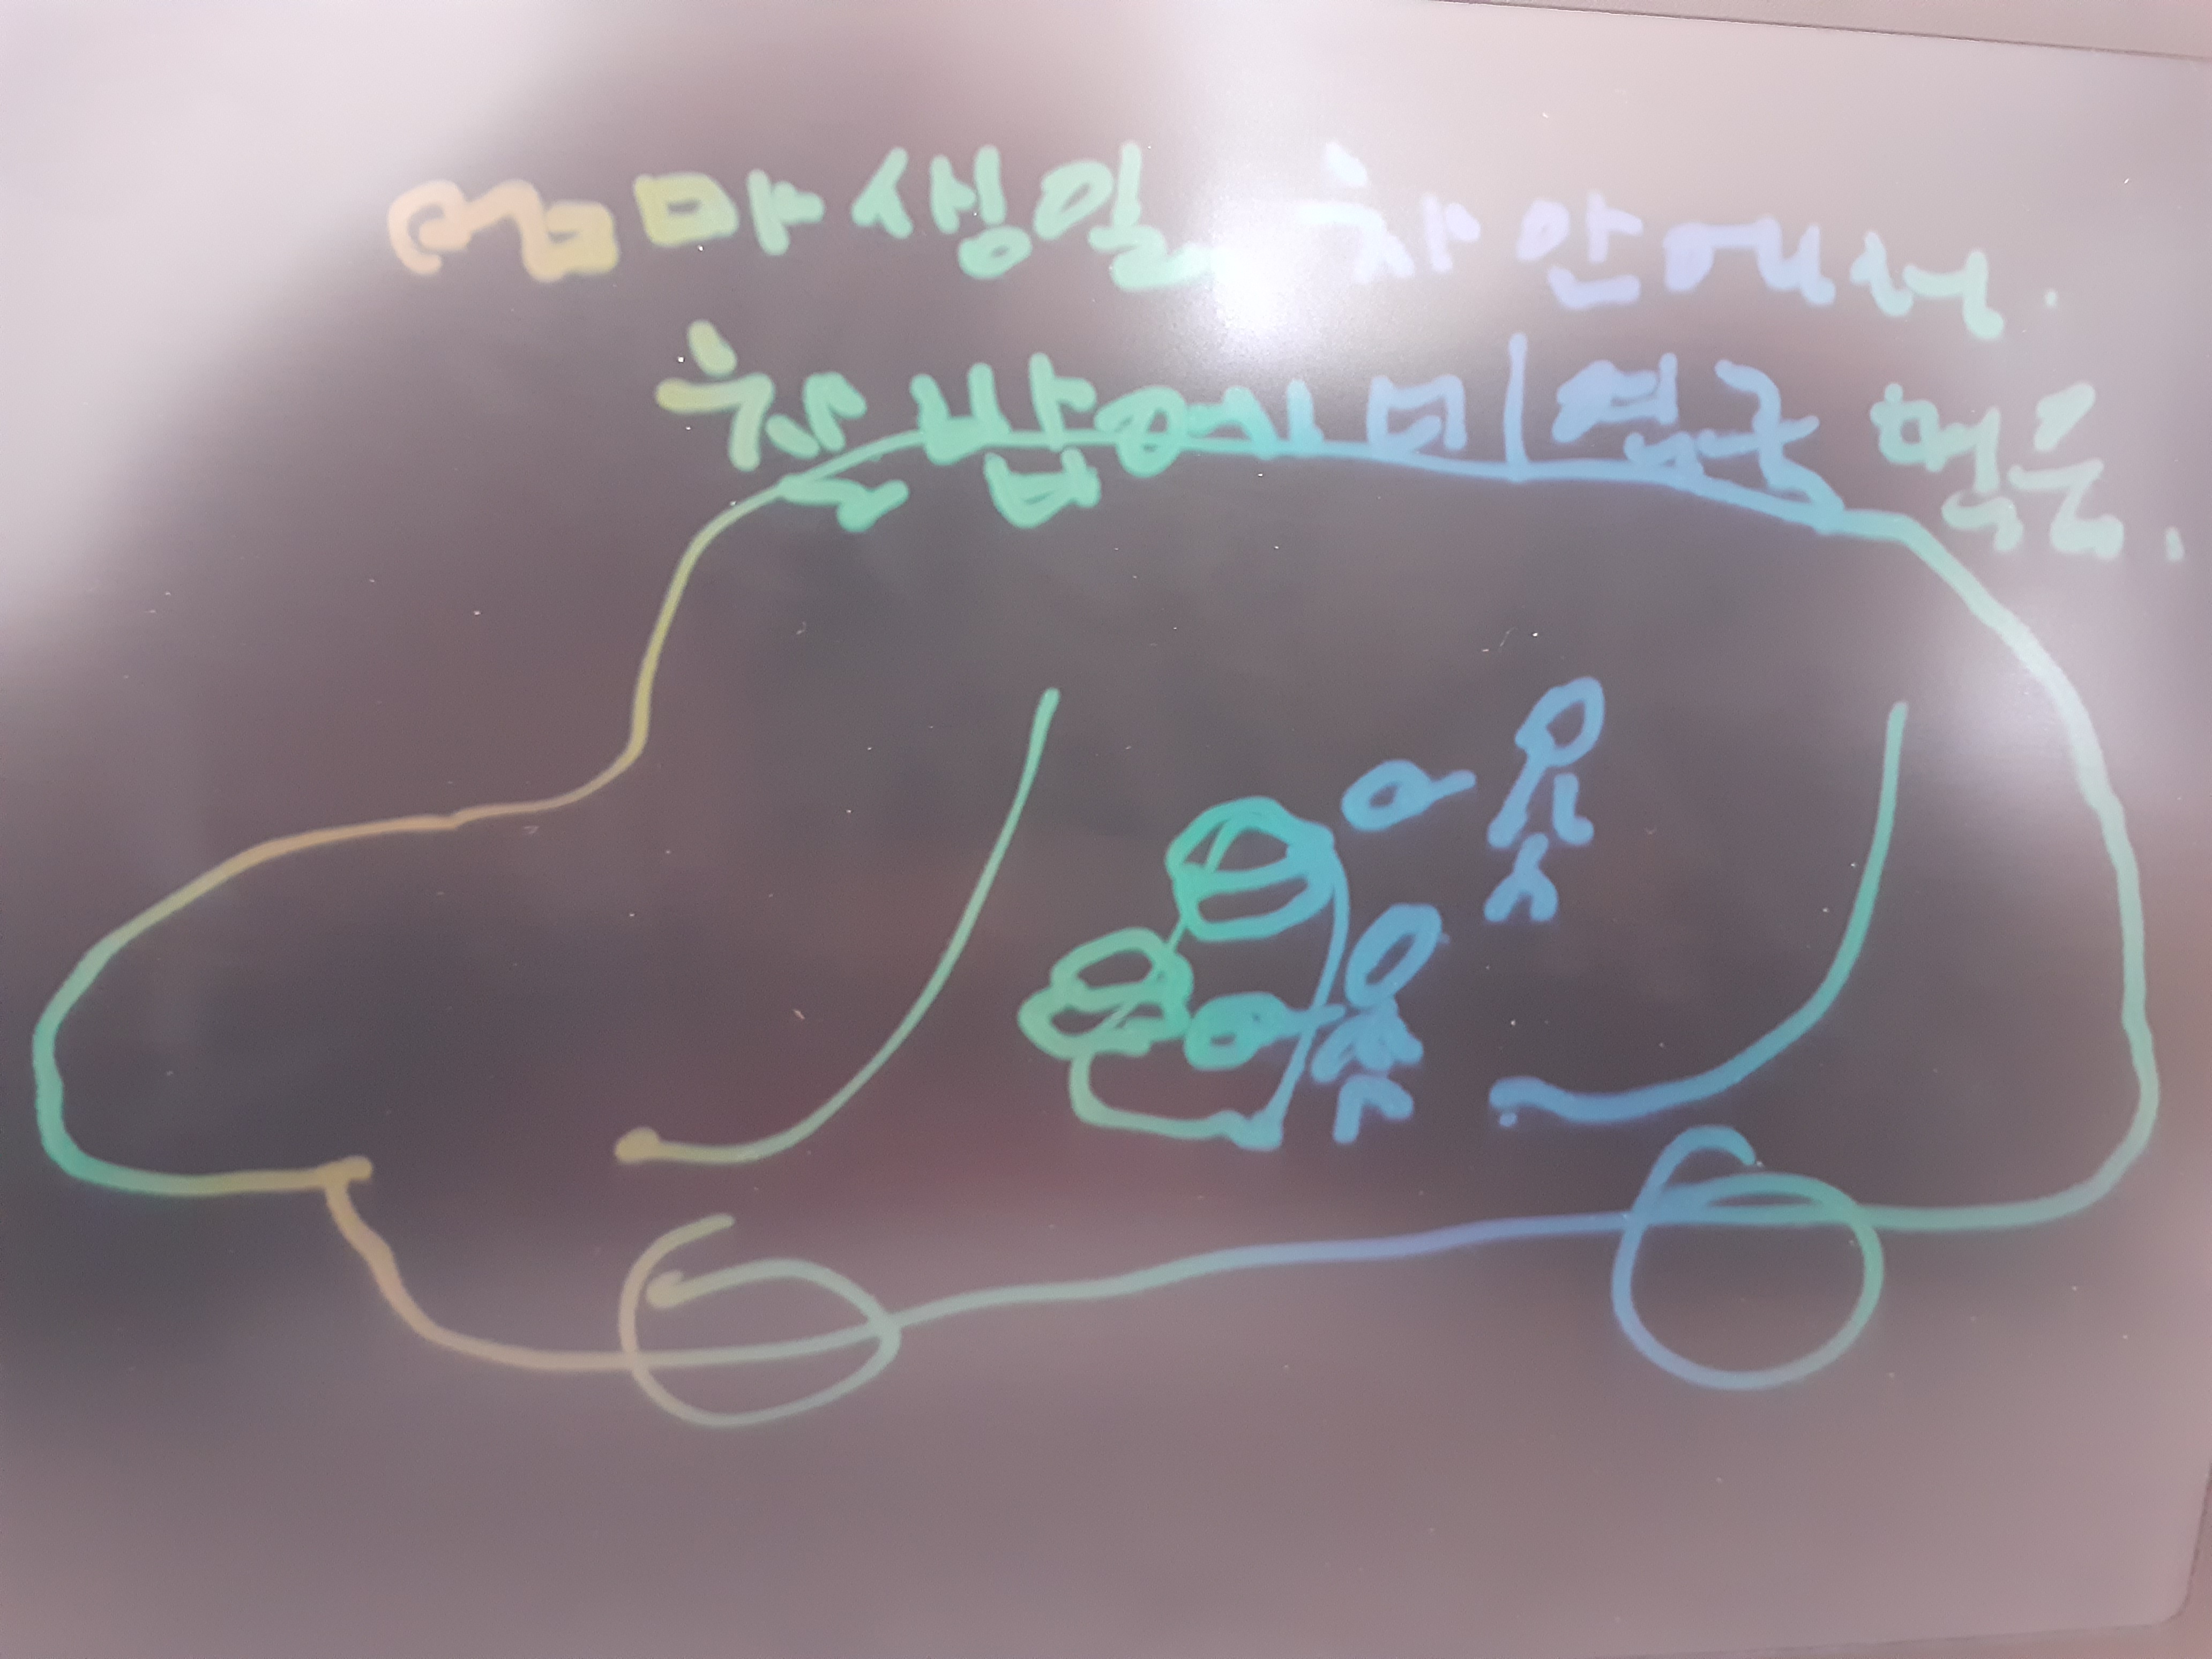 엄마생일 차안에서.
찰밥에 미역국 먹음.